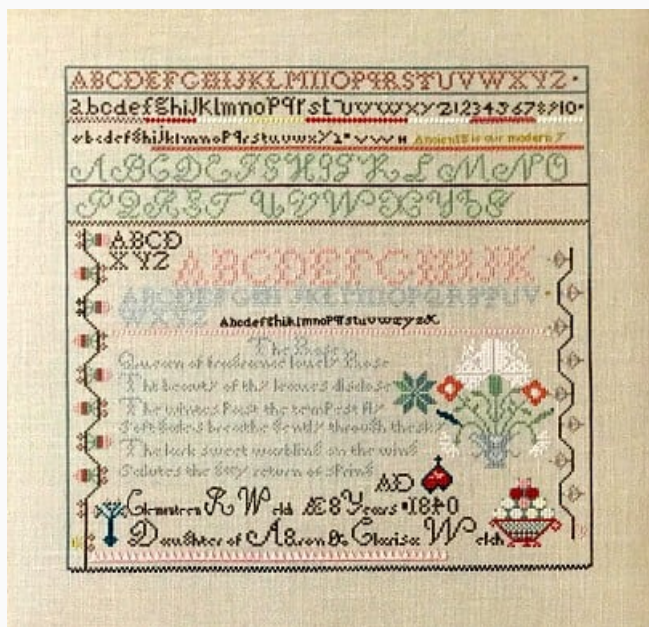 ABCDEFGHIJKLMNOPQRSTUVWXYZ
abcdefghiJklmnoPqrstuvwxyz12345678910
abcdefghiJklmnoPqrstuvwxyz
ABCDEFGHIJKLMNO
PQRSTUVWXYZ
ABCD
XYZ
ABCDEFGHIJK
ABCDEFGHIJKLMNOPQRSTUV
WXYZ
AbcdefghiklmnoPqrstuvwxyz
The Rose
Queen of fragrance lovely Rose
The beauty of thy leaves disclose
The winters Past the tempest fly
Soft Gales breathe Gently through the sky
The lark sweet warbling on the wing
Salutes the Gay return of spring
AD
R Welch Æ 8 Years 1840
Daughter of Aaron & Clarisa Welch